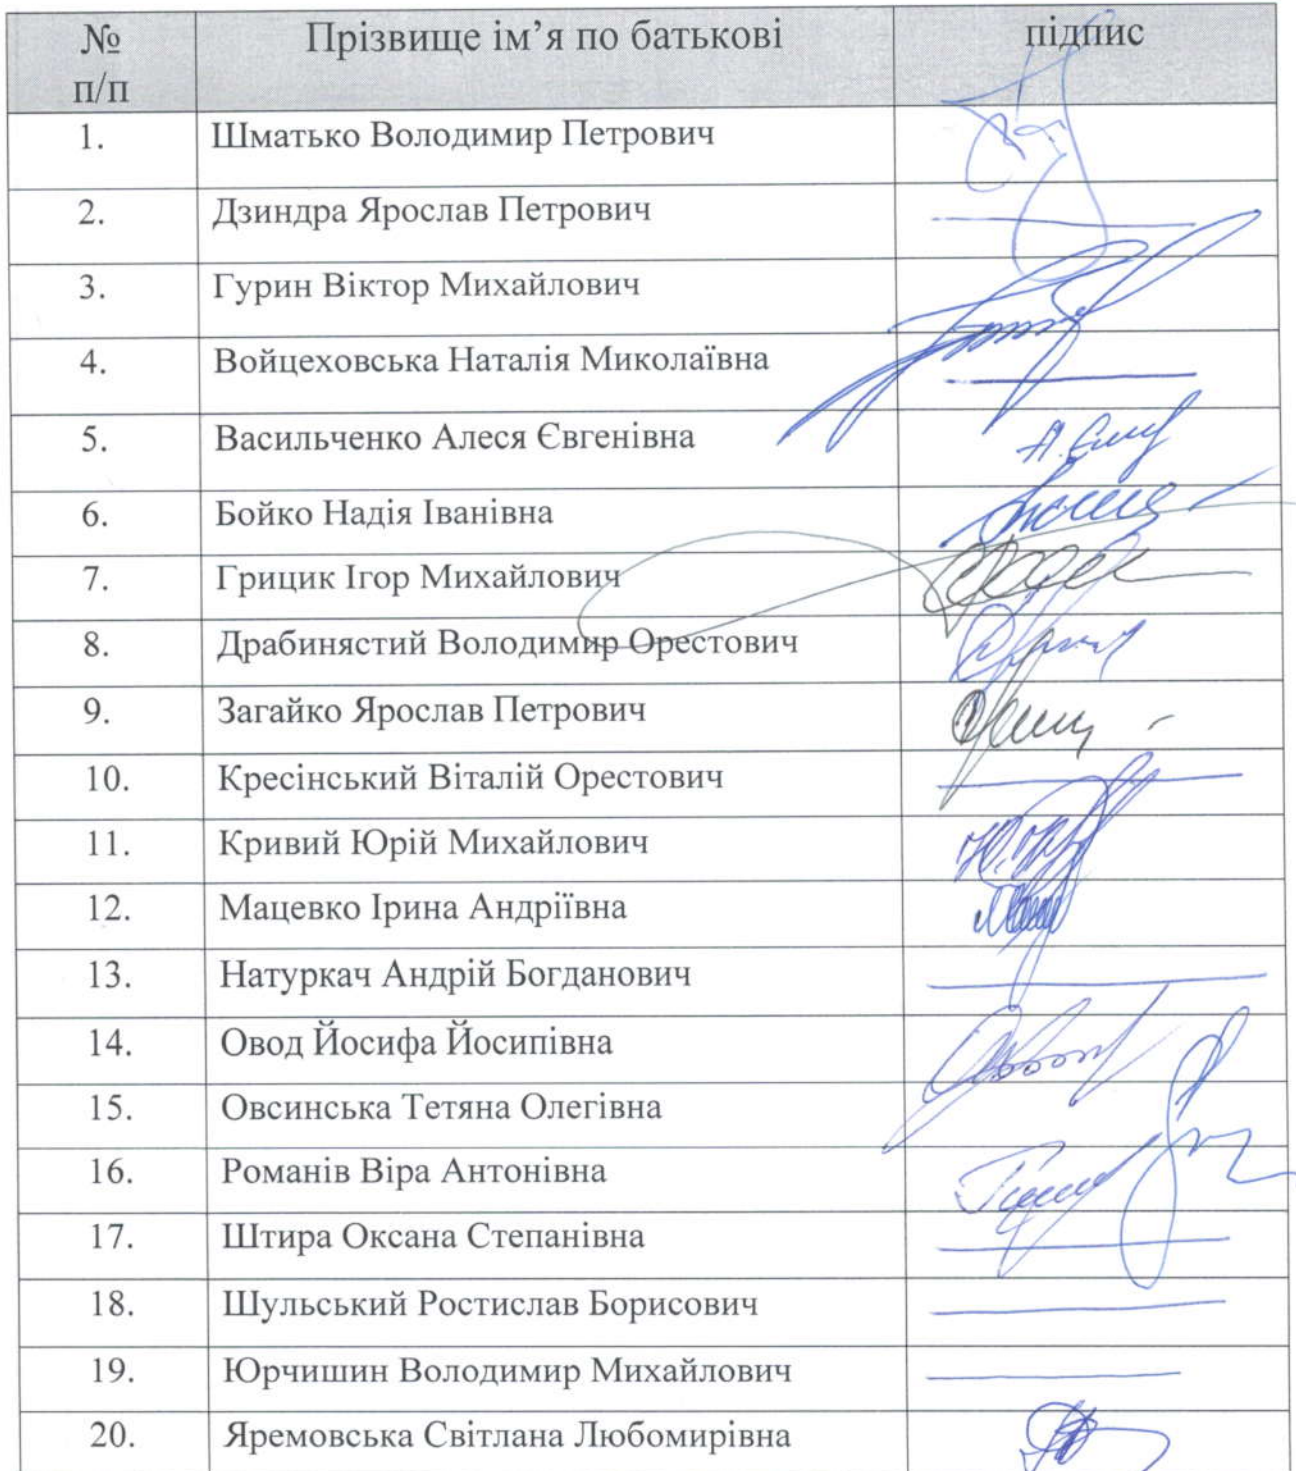 № п/п Прізвище ім’я по батькові підпис
1. Шматько Володимир Петрович
2. Дзиндра Ярослав Петрович
3. Гурин Віктор Михайлович
4. Войцеховська Наталія Миколаївна
5. Васильченко Алеся Євгенівна
6. Бойко Надія Іванівна
7. Грицик Ігор Михайлович
8. Драбинястий Володимир Орестович
9. Загайко Ярослав Петрович
10. Кресінський Віталій Орестович
11. Кривий Юрій Михайлович
12. Мацевко Ірина Андріївна
13. Натуркач Андрій Богданович
14. Овод Йосифа Йосипівна
15. Овсинська Тетяна Олегівна
16. Романів Віра Антонівна
17. Штира Оксана Степанівна
18. Шульський Ростислав Борисович
19. Юрчишин Володимир Михайлович
20. Яремовська Світлана Любомирівна